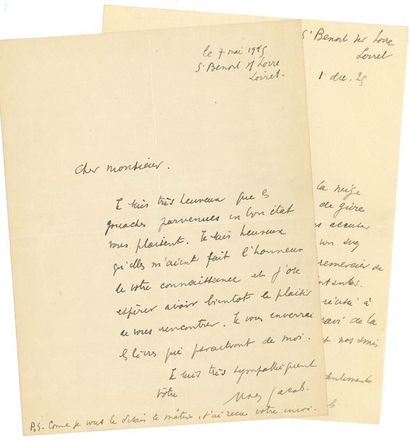 le 7 mai 1925
St Benoit s/ Loire
Loiret.
Cher monsieur.
Je suis très heureux que les
gouaches parvenues en bon état
vous plaisent. Je suis heureux
qu'elles m'aient fait l'honneur
de votre connaissance et j'ose
espérer avoir bientôt le plaisir
de vous rencontrer. Je vous enverrai
les livres qui paraîtront de moi.
Je suis très sympathiquement
votre
Max Jacob
P.S. Comme je vous le disais le matin, j'ai reçu votre envoi.
St Benoit sur Loire
Loiret
1 dec. 25
la neige
de
un
remercier de
à
de la
et nos amis